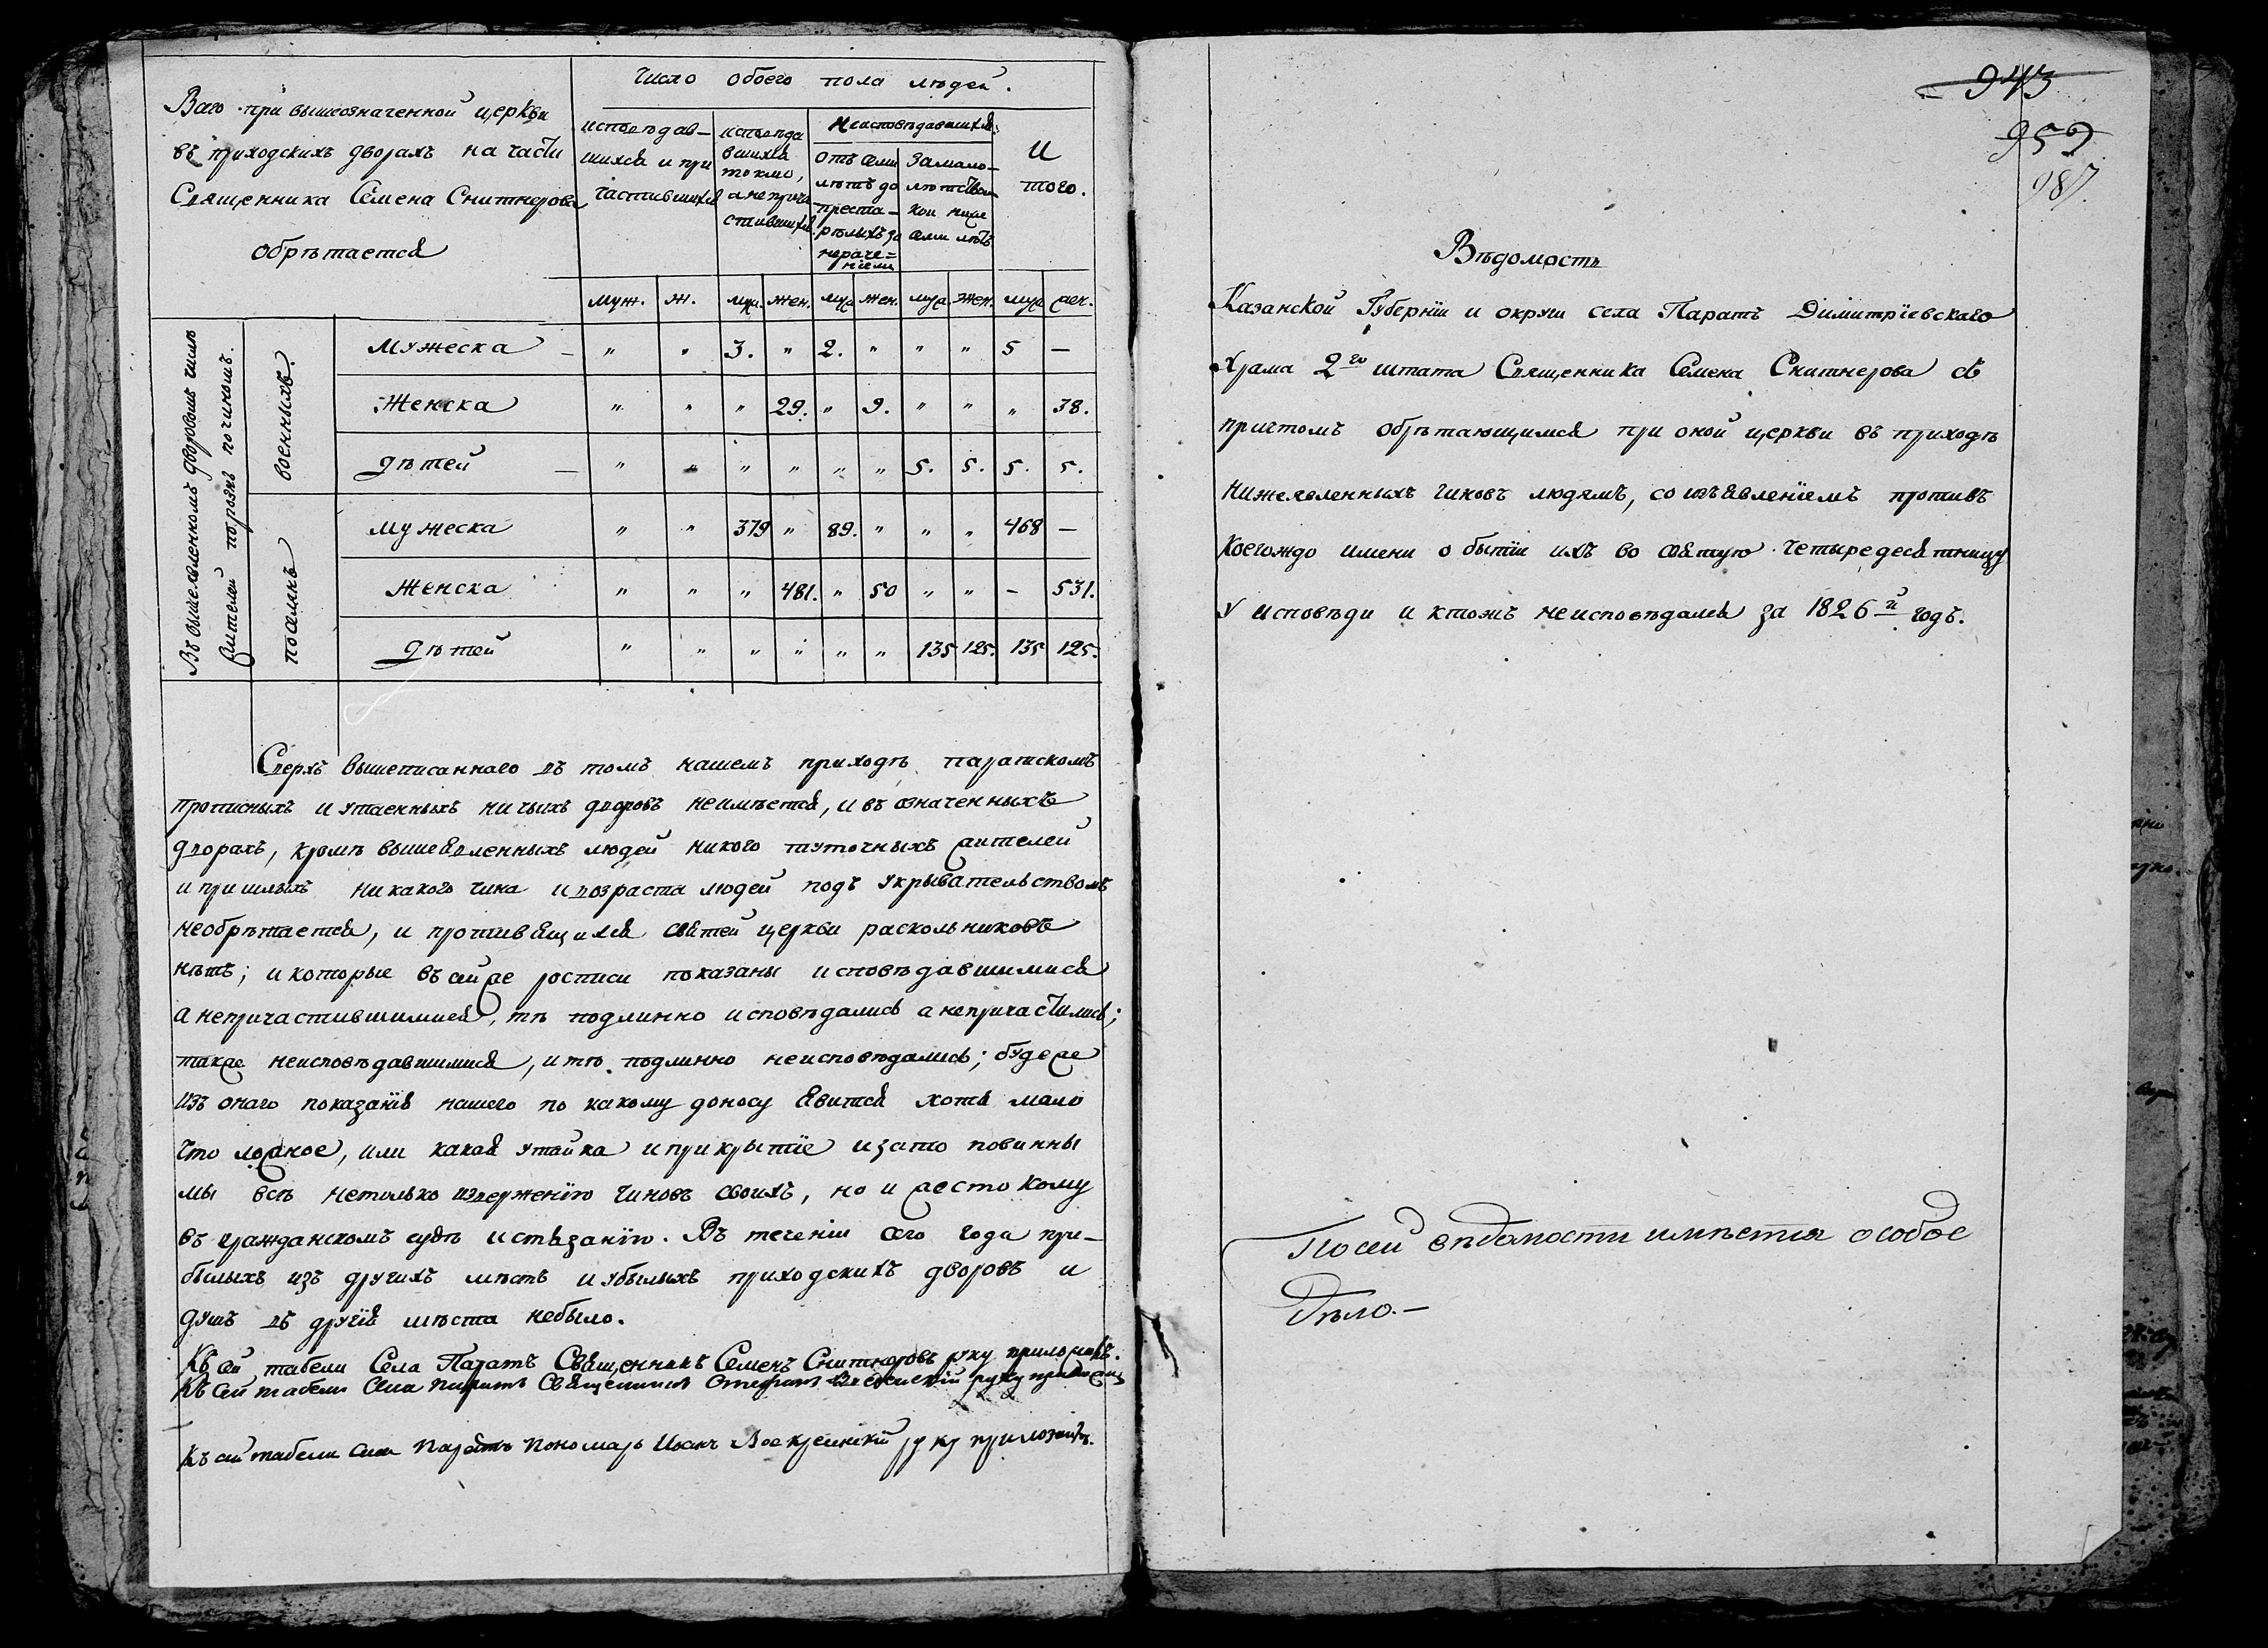 Всего при вышеозначенной церкви
въ приходскихъ дворахъ на части
Священника Семена Снитнерова
обрѣтается
Число обоего пола людей.
исповѣдав-
шихся и при
частившихся
исповѣда
вшихся
токмо,
а неприча
стившихся
Неисповѣдавшихся
отъ семи
лѣтъ до
преста-
рѣлыхъ за
нераче=
ніемъ
за мало-
лѣтств
кои ниже
семи лѣтъ
И
того.
муж. ж. муж. жен. муж жен. муж. жен. муж жен.
Въ вышеявленномъ дворовомъ числѣ
жителей порознь по чинамъ.
военныхъ.
Мужеска — " " 3. " 2. " " " 5 —
Женска " " " 29. " 9. " " " 38.
дѣтей — " " " " " " 5. 5. 5. 5.
поселянъ
мужеска " " 379 " 89. " " " 468 —
Женска " " " 481. " 50 " " - 531.
дѣтей " " " " " " 135 125. 135 125.
Сверхъ вышеписаннаго въ томъ нашемъ приходѣ паратскомъ
прописныхъ и утаенныхъ ничьихъ дворовъ неимѣется, и въ означенныхъ
дворахъ, кромѣ вышеявленныхъ людей никого туточныхъ жителей
и пришлыхъ никакого чина и возраста людей подъ укрывательствомъ
необрѣтается, и противящихся святей церкви раскольниковъ
нѣтъ; и которые въ сей же росписи показаны исповѣдавшимися
а непричастившимися, тѣ подлинно исповѣдались а непричастились;
также неисповѣдавшимися, и тѣ подлинно неисповѣдались; буде же
изъ онаго показанія нашего по какому доносу явится хотя мало
что ложное, или какая утайка и прикрытіе и за то повинны
мы всѣ нетолько изверженію чиновъ своихъ, но и жестокому
въ гражданскомъ судѣ истязанію. Въ теченіи сего года при-
былыхъ изъ другихъ мѣстъ и убылыхъ приходскихъ дворовъ и
душъ въ другія мѣста небыло.
Къ сей табели Села Паратъ Священникъ Семенъ Снитнеровъ руку приложилъ.
Къ сей табели Села Паратъ Священникъ Стефанъ руку приложилъ
Къ сей табели Села Паратъ Пономарь Иванъ Воскресенскій руку приложилъ.
943
959
987.
Вѣдомость
Казанской Губерніи и округи села Паратъ Димитріевскаго
Храма 2го штата Священника Семена Снитнерова съ
причтомъ обрѣтающимся при оной церкви въ приходѣ
нижеявленныхъ чиновъ людямъ, со изъявленіемъ противъ
коегождо имени о бытіи ихъ во святую четыредесятницу
у исповѣди и ктожъ неисповѣдался за 1826й годъ.
По сей вѣдомости имѣется особое
Дѣло.—